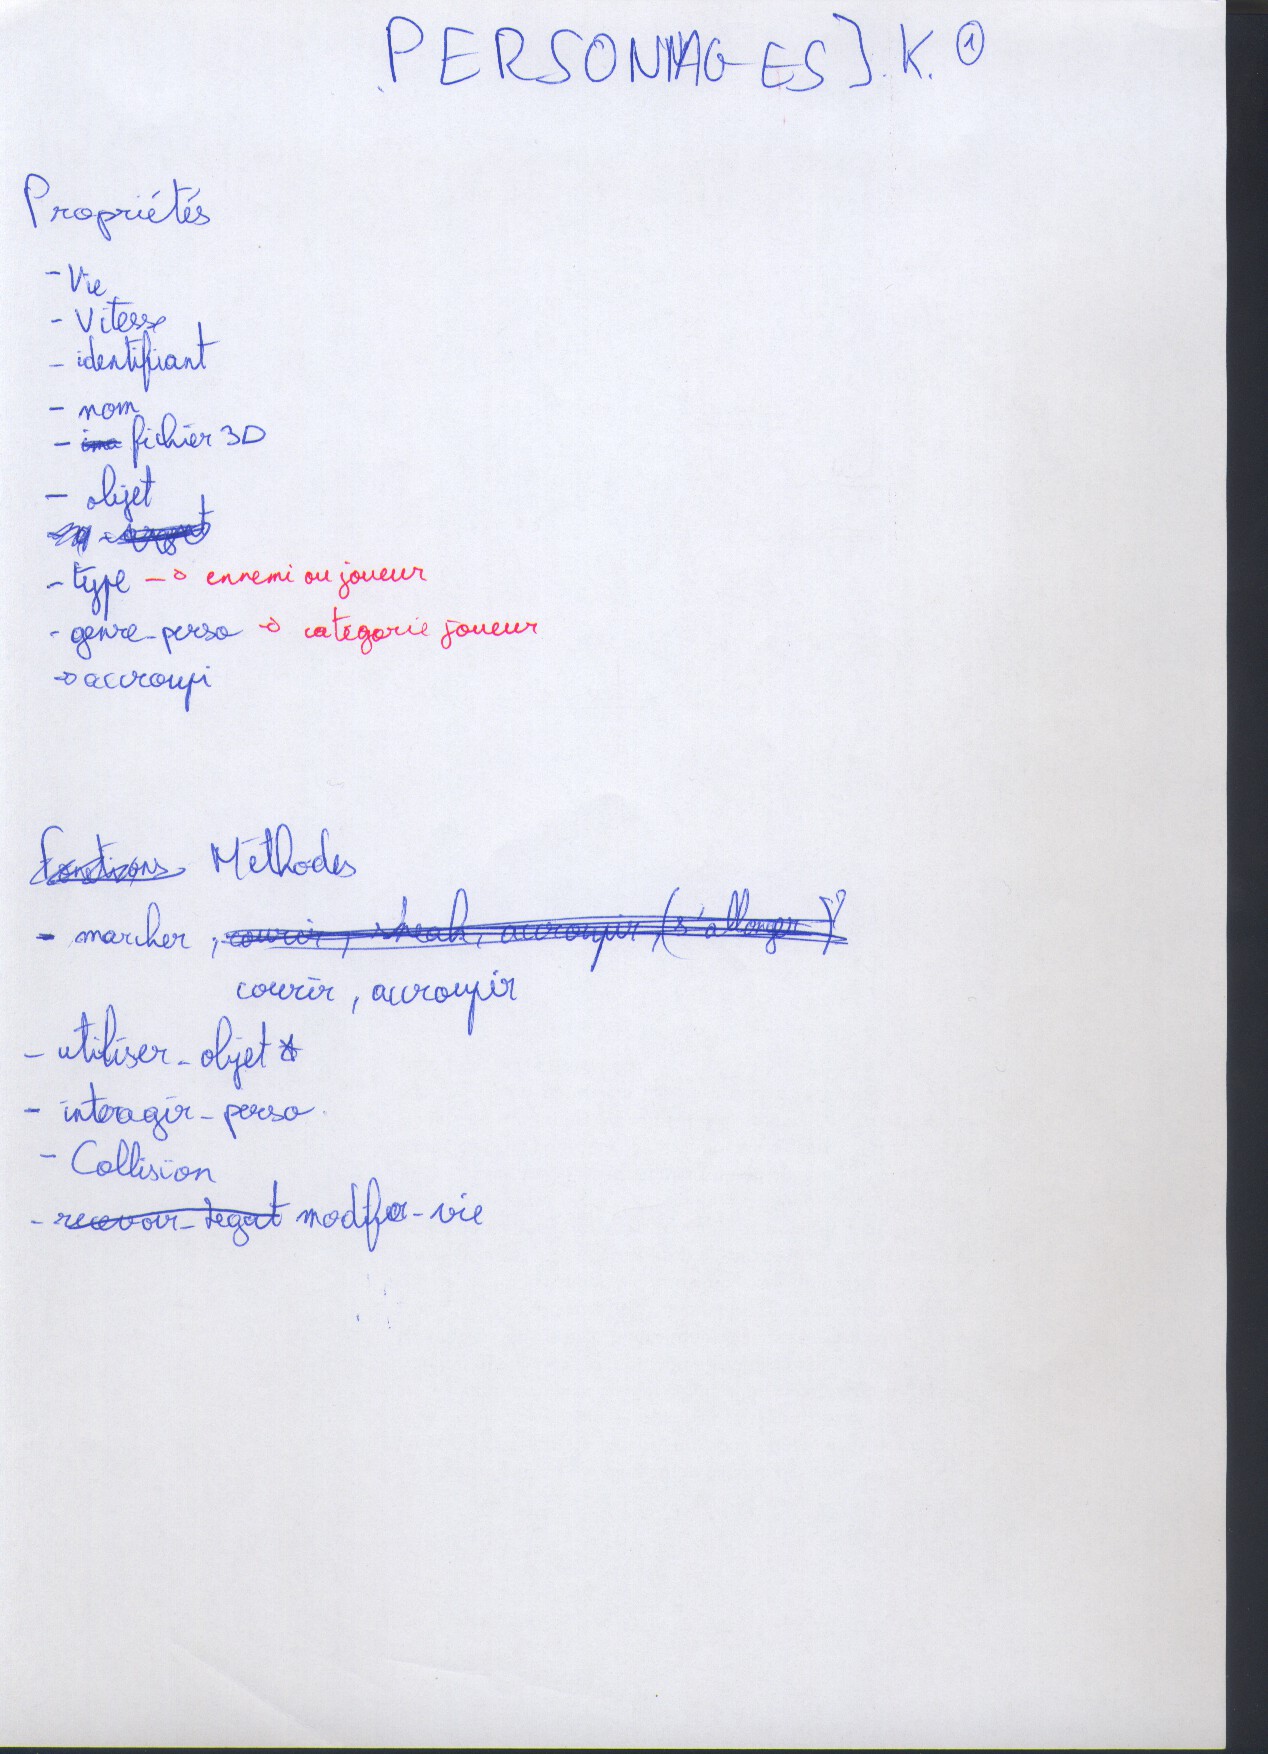 PERSONNAGES J.K. ①
Propriétés
- Vie
- Vitesse
- identifiant
- nom
- ima fichier 3D
- objet
- argent
- type -> ennemi ou joueur
- genre_perso -> catégorie joueur
-> accroupi
Fonctions Méthodes
- marcher, courir, sneak, accroupir, (s'allonger)?
courir, accroupir
- utiliser_objet *
- interagir_perso
- Collision
- recevoir_degat modifier_vie